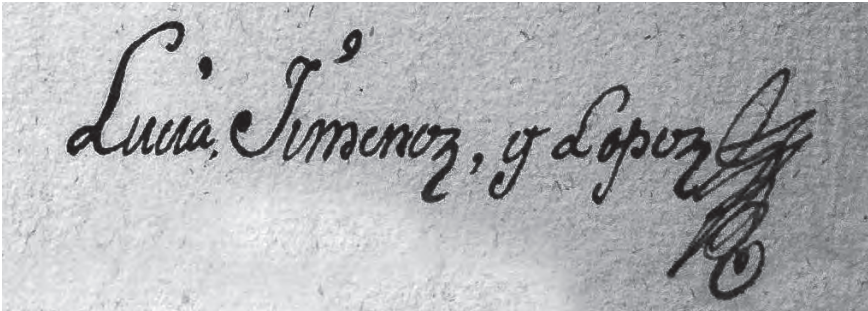 Lucia, Jimenez, y Lopez